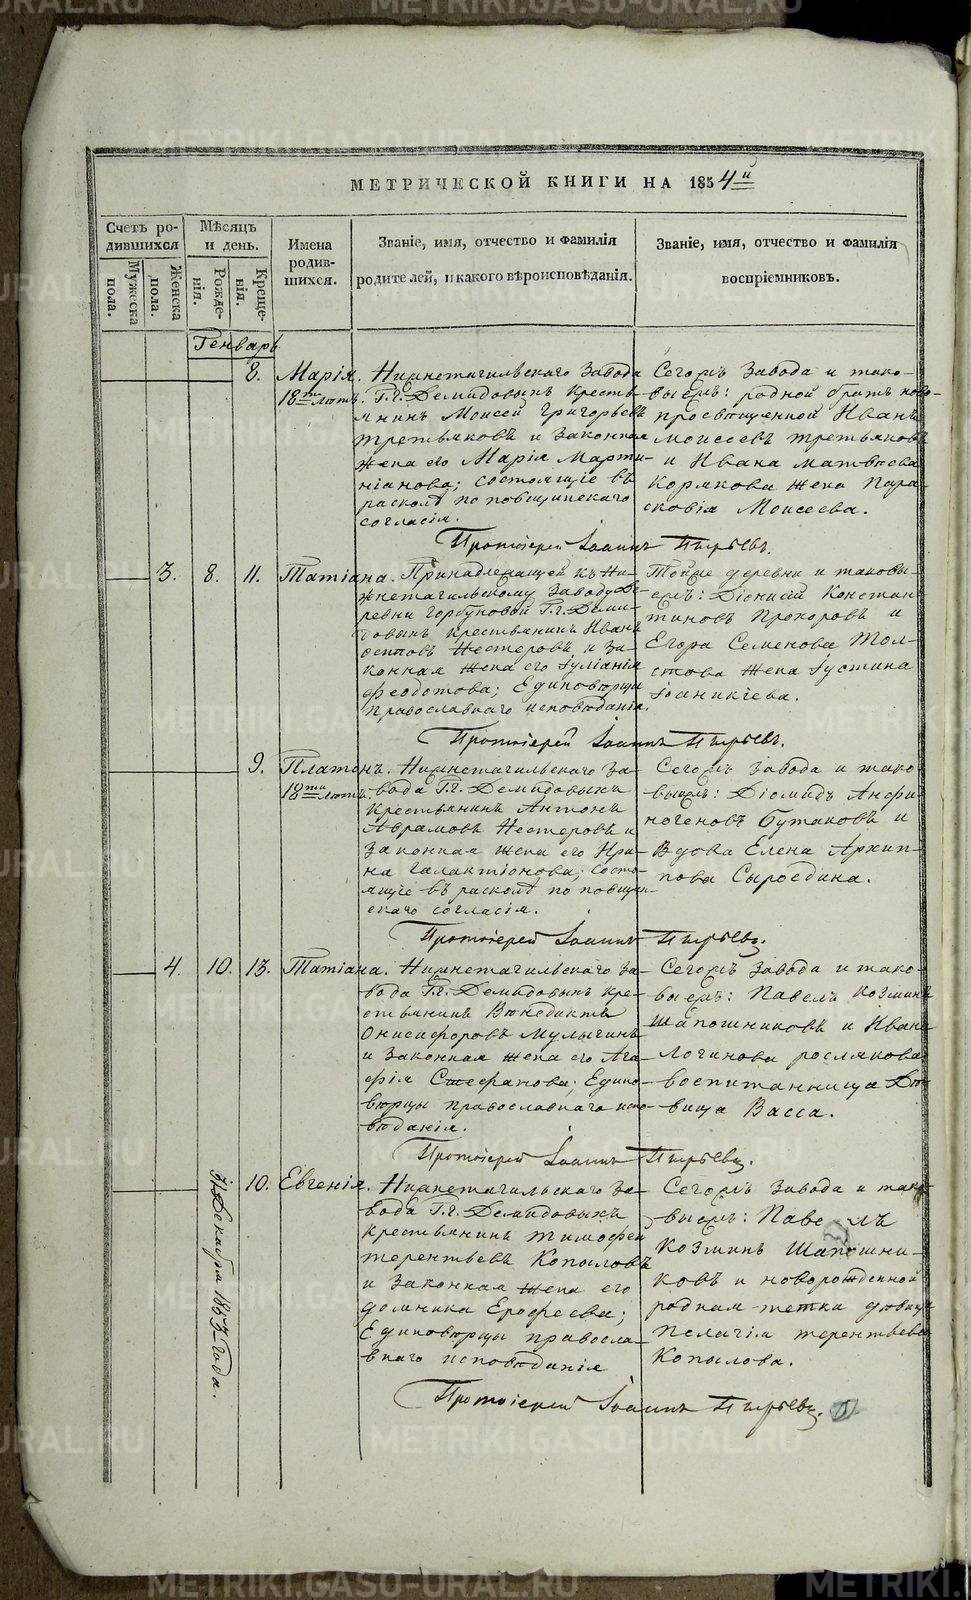 МЕТРИЧЕСКОЙ КНИГИ НА 1854й
Счетъ ро-
дившихся
Мѣсяцъ
и день.
Мужеска
пола.
Женска
пола.
Рожде-
нія.
Креще-
нія.
Имена
родив-
шихся.
Званіе, имя, отчество и фамилія
родителей, и какого вѣроисповѣданія.
Званіе, имя, отчество и фамилія
воспріемниковъ.
Генварь
8. Марія.
18ти лѣтъ.
Нижнетагильскаго Завода
Г.г. Демидовыхъ кресть-
янинъ Моисей Григорьевъ
Третьяковъ и законная
жена его Марія Марти-
ніанова; состоящіе въ
расколѣ по
согласія.
Сегожъ завода и тако-
выежъ: родной братъ ново-
просвѣщенной Иванъ
Моисеевъ Третьяковъ
и Ивана Матвѣева
Кормкова жена Пара-
сковія Моисеева.
Протоіерей Іоаннъ Пырьевъ.
3. 8. 11. Татіана.
Принадлежащей къ Ни-
жнетагильскому Заводу де-
ревни Горбуновой Г.г. Деми-
довыхъ крестьянинъ Иванъ
Осиповъ Нестеровъ и за-
конная жена его Іуліанія
Феодотова; Единовѣрцы
Православнаго исповѣданія.
Тойже деревни и таковы-
ежъ: Діонисій Констан-
тиновъ Прохоровъ и
Егора Семенова Тол-
стова жена Іустина
Іоаникіева.
Протоіерей Іоаннъ Пырьевъ.
9. Платонъ.
18ти лѣтъ
Нижнетагильскаго За-
вода Г.г. Демидовыхъ
крестьянинъ Антонъ
Аврамовъ Нестеровъ и
законная жена его Ири-
на Галактіонова; состо-
ящіе въ расколѣ по
скаго согласія.
Сегожъ завода и тако-
выежъ: Діомидъ Анфи-
ногеновъ Бутаковъ и
Вдова Елена Архип-
пова Сыроедина.
Протоіерей Іоаннъ Пырьевъ.
4. 10. 13. Татіана.
Нижнетагильскаго За-
вода Г.г. Демидовыхъ кре-
стьянинъ Венедиктъ
Онисифоровъ Мулычинъ
и законная жена его Ага-
фія Стефанова; Едино-
вѣрцы православнаго испо-
вѣданія.
Сегожъ завода и тако-
выежъ: Павелъ Козминъ
Шапошниковъ и Ивана
Логинова Рослякова
воспитанница дѣ-
вица Васса.
Протоіерей Іоаннъ Пырьевъ.
31 Декабря 1853 года.
10. Евгенія.
Нижнетагильскаго За-
вода Г.г. Демидовыхъ
крестьянинъ Тимофей
Терентьевъ Копыловъ
и законная жена его
Домника Ерофеева;
Единовѣрцы правосла-
внаго исповѣданія
Сегожъ завода и тако-
выежъ: Павелъ
Козминъ Шапошни-
ковъ и новорожденной
родная тетка дѣвица
Пелагія Терентьева
Копылова.
Протоіерей Іоаннъ Пырьевъ.
METRIKI.GASO-URAL.RU